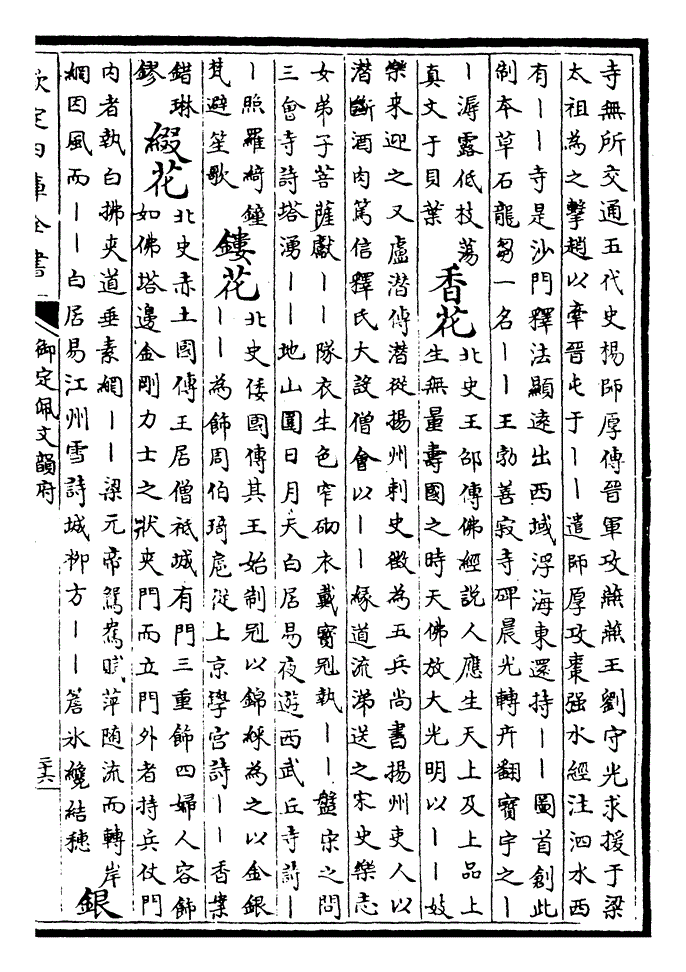 寺無所交通五代史楊師厚傳晉軍攻燕燕王劉守光求援于梁
太祖為之擊趙以牽晉屯于｜｜遣師厚攻棗强水經注泗水西
有｜｜寺是沙門釋法顯遠出西域浮海東還持｜｜圖首創此
制本草石龍芻一名｜｜王勃善寂寺碑晨光轉卉翻寶宇之｜
｜潺露低枝蕩
真文于貝葉
香花
北史王邵傳佛經說人應生天上及上品上
生無量壽國之時天佛放大光明以｜｜妓
樂来迎之又盧潛傳潛從揚州刺史徵為五兵尚書揚州吏人以
潛斷酒肉篤信釋氏大設僧會以｜｜緣道流涕送之宋史樂志
女弟子菩薩獻｜｜隊衣生色窄砌衣戴寶冠執｜｜盤宗之問
三會寺詩塔湧｜｜地山圓日月天白居易夜遊西武丘寺詩｜
｜照羅綺鐘
梵避笙歌
鏤花
北史倭國傳其王始制冠以錦綵為之以金銀
｜｜為飾周伯琦扈從上京學宫詩｜｜香業
錯琳
鏐
綴花
北史赤土國傳王居僧祇城有門三重飾四婦人容飾
如佛塔邊金剛力士之狀夾門而立門外者持兵仗門
内者執白拂夾道垂素網｜｜梁元帝鴛鴦賦萍随流而轉岸
網因風而｜｜白居易江州雪詩城柳方｜｜簷氷纔結穗
銀
欽定四庫全書
御定佩文韻府
二十六